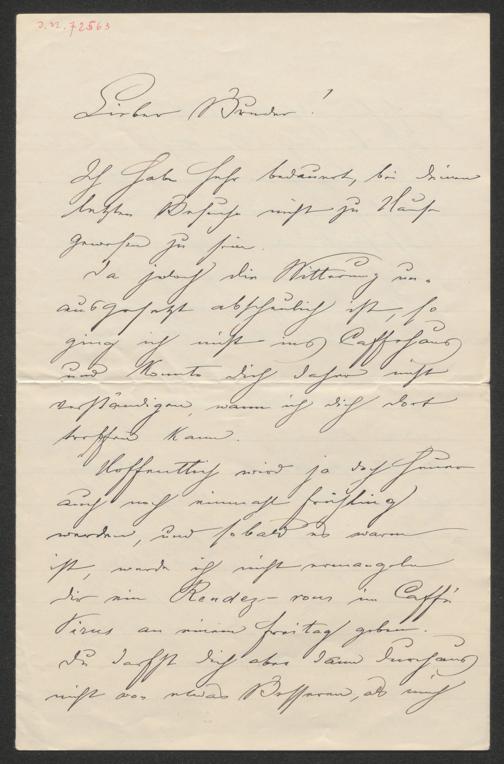 J.N. 72563
Lieber Bruder!
Ich habe sehr bedauert, bei deinem
letzten Besuche nicht zu Hause
gewesen zu sein.
Da jedoch die Witterung un-
ausgesetzt abscheulich ist, so
ging ich nicht ins Caffehaus
und konnte dich daher nicht
verständigen, wann ich dich dort
treffen kann.
Hoffentlich wird ja doch heuer
auch noch einmahl Frühling
werden, und sobald es warm
ist, werde ich nicht ermangeln
dir ein Rendez-vous im Caffé
an einem Freitag geben.
Du darfst dich aber dann durchaus
nicht von etwas Besserem, als mich